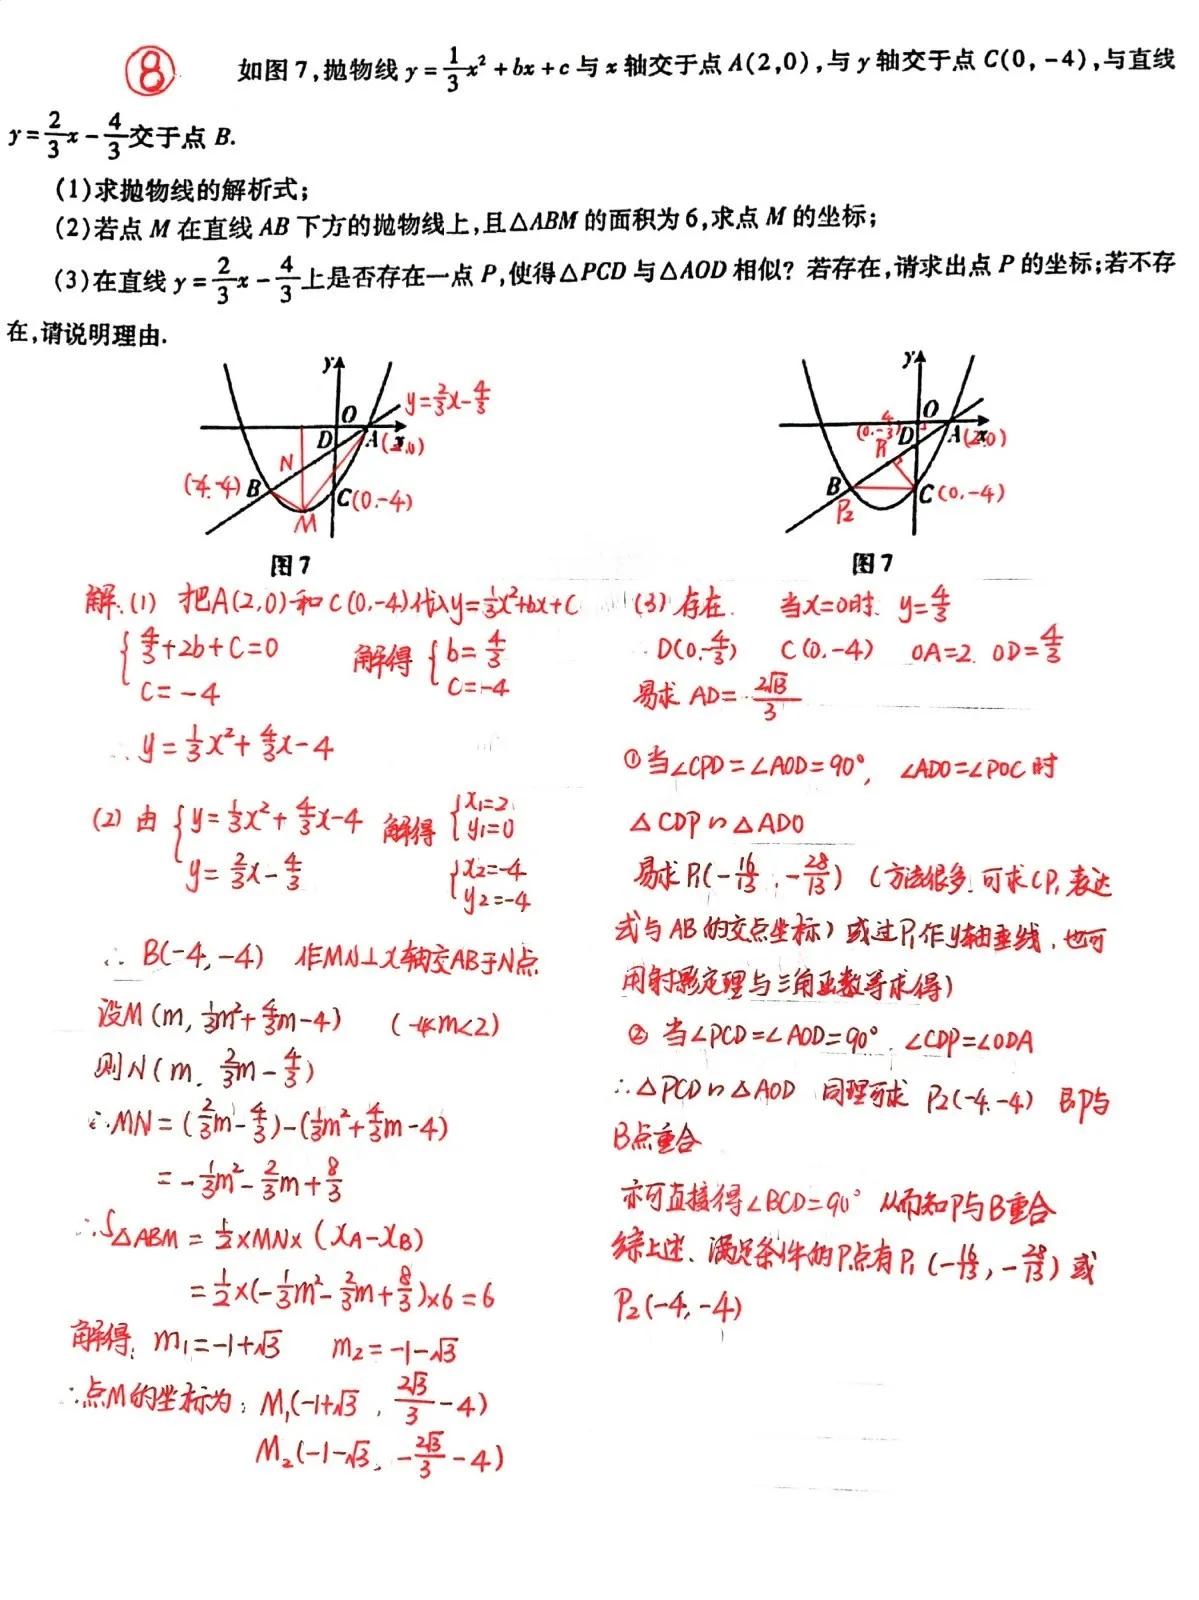 ⑧ 如图7,抛物线y=1/3x²+bx+c与x轴交于点A(2,0),与y轴交于点C(0,-4),与直线
y=2/3x-4/3交于点B.
(1)求抛物线的解析式;
(2)若点M在直线AB下方的抛物线上,且△ABM的面积为6,求点M的坐标;
(3)在直线y=2/3x-4/3上是否存在一点P,使得△PCD与△AOD相似?若存在,请求出点P的坐标;若不存
在,请说明理由.
y
y=2/3x-4/3
O
D
A
x
(2,0)
N
(-4,-4)
B
C(0,-4)
M
图7
y
O
(0,-4/3)
D
A
x
(2,0)
P₁
B
C(0,-4)
P₂
图7
解:(1) 把A(2,0)和C(0,-4)代入y=1/3x²+bx+c
{4/3+2b+c=0
c=-4
解得{b=4/3
c=-4
∴y=1/3x²+4/3x-4
(2) 由{y=1/3x²+4/3x-4
y=2/3x-4/3
解得{x₁=2
y₁=0
{x₂=-4
y₂=-4
∴B(-4,-4) 作MN⊥x轴交AB于N点
设M(m,1/3m²+4/3m-4) (-4<m<2)
则N(m,2/3m-4/3)
∴MN=(2/3m-4/3)-(1/3m²+4/3m-4)
=-1/3m²-2/3m+8/3
∴S△ABM=1/2×MN×(xA-xB)
=1/2×(-1/3m²-2/3m+8/3)×6=6
解得:m₁=-1+√3 m₂=-1-√3
∴点M的坐标为:M₁(-1+√3,2√3/3-4)
M₂(-1-√3,-2√3/3-4)
(3)存在. 当x=0时 y=4/3
∴D(0,-4/3) C(0,-4) OA=2. OD=4/3
易求AD=2√13/3
①当∠CPD=∠AOD=90°, ∠ADO=∠PDC时
△CDP∽△ADO
易求P₁(-16/13,-28/13) (方法很多.可求CP₁表达
式与AB的交点坐标)或过P₁作y轴垂线,也可
用射影定理与三角函数等求得)
②当∠PCD=∠AOD=90°.∠CDP=∠ODA
∴△PCD∽△AOD 同理可求 P₂(-4,-4) 即P与
B点重合
亦可直接得∠BCD=90° 从而知P与B重合
综上述、满足条件的P点有P₁(-16/13,-28/13)或
P₂(-4,-4)